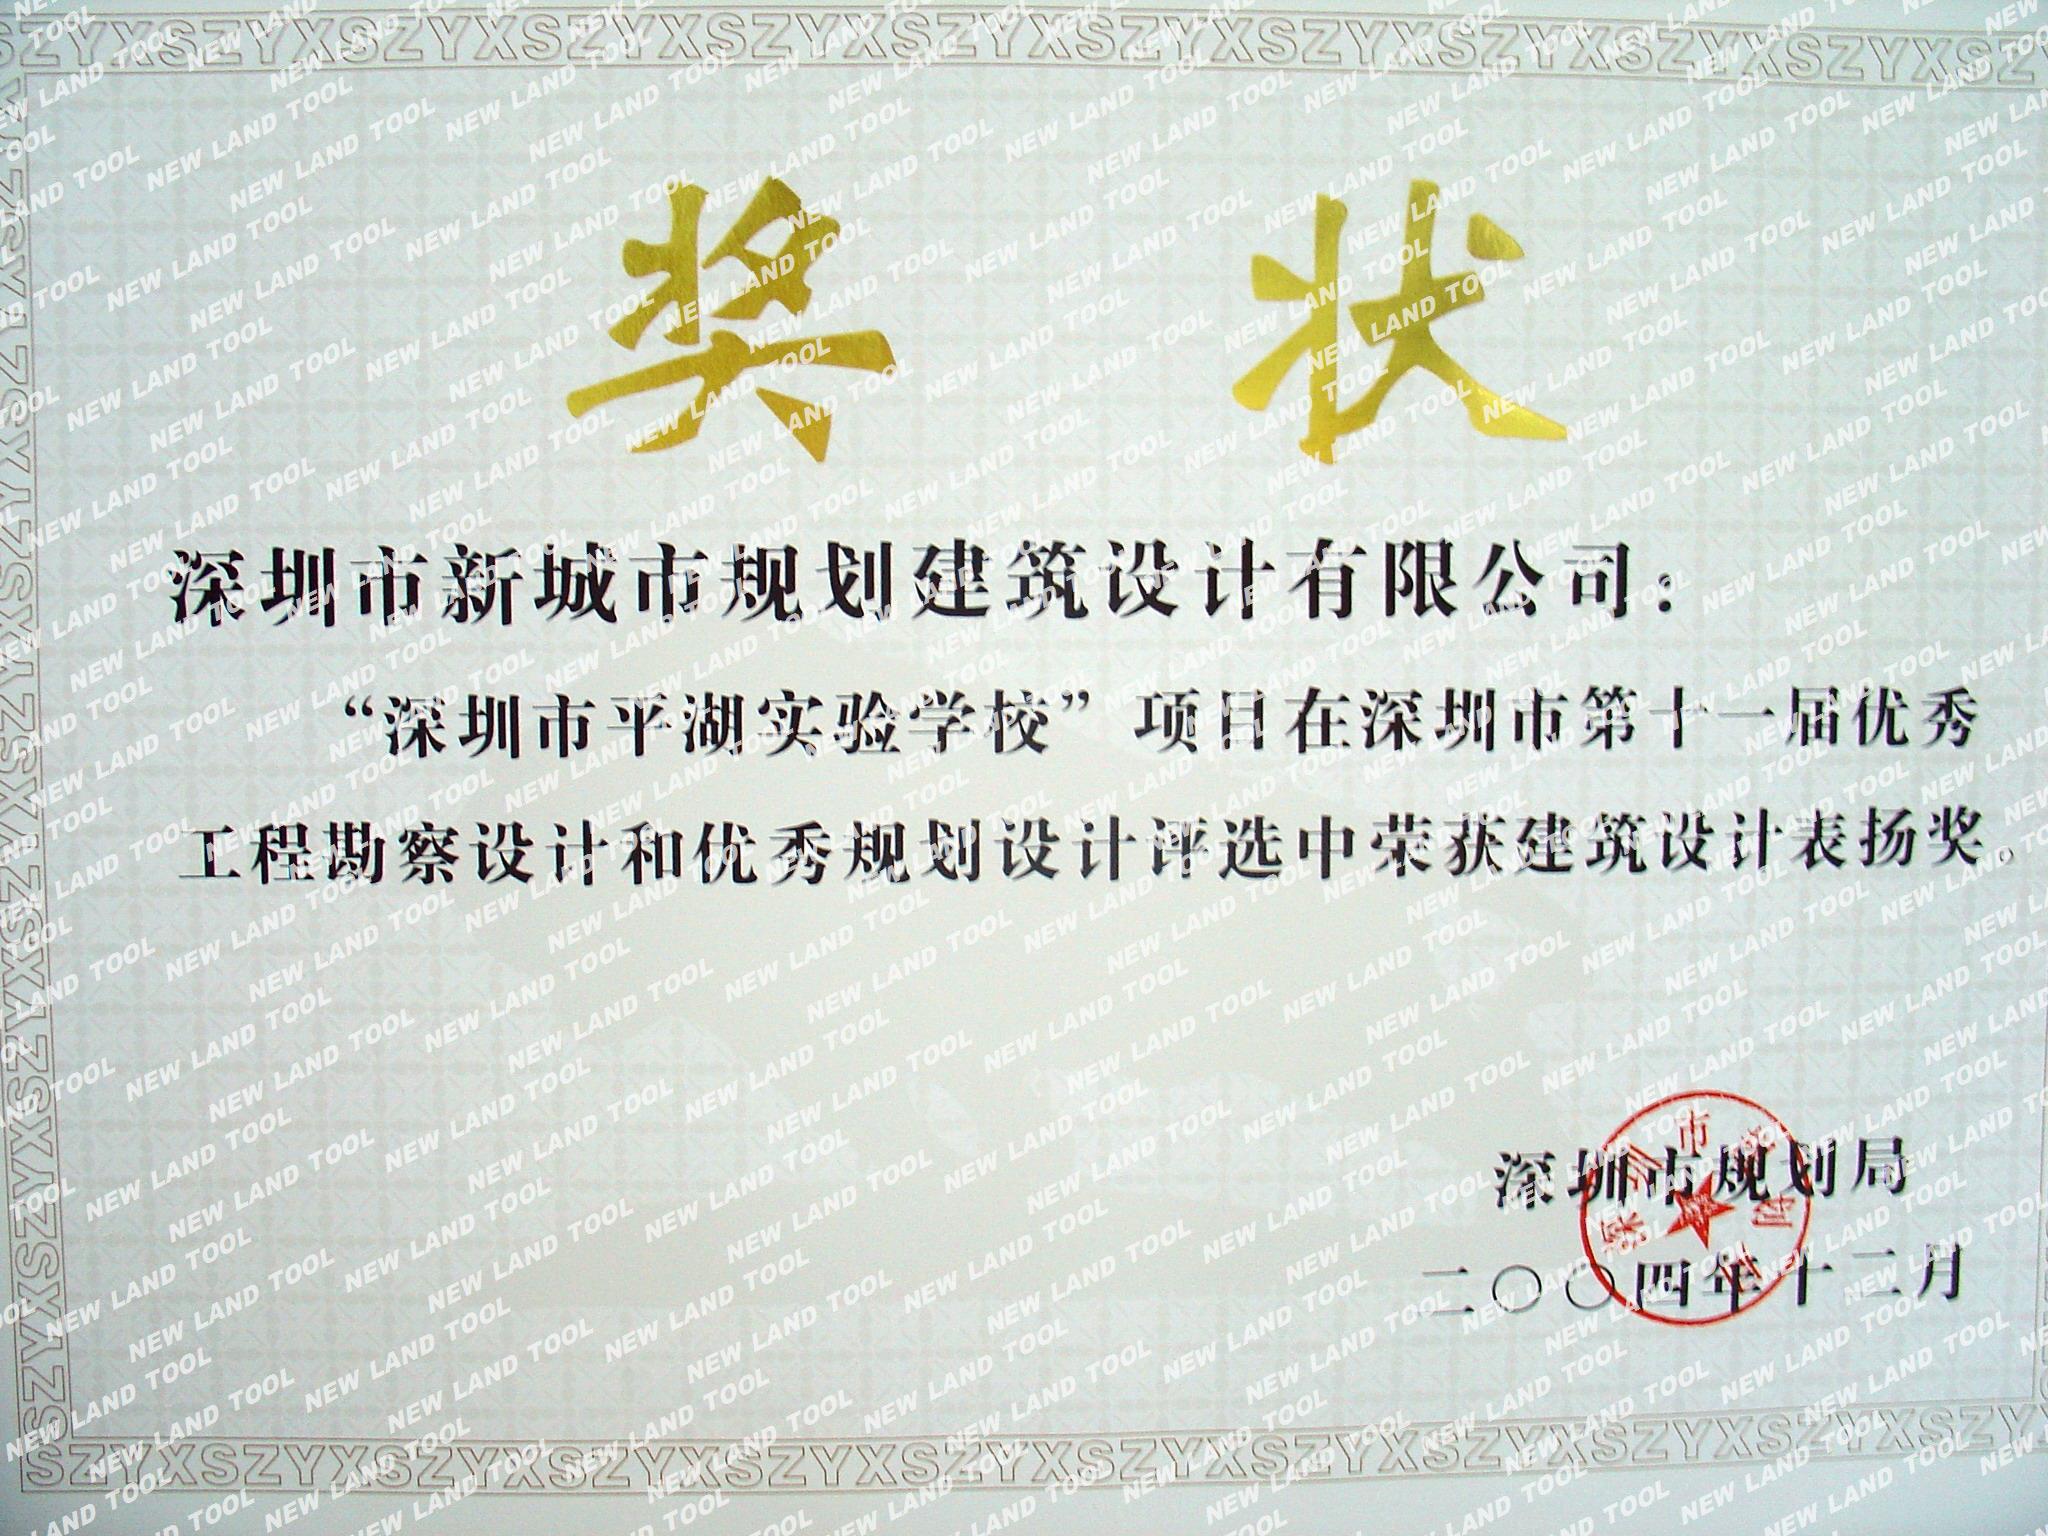 奖 状
深圳市新城市规划建筑设计有限公司：
“深圳市平湖实验学校”项目在深圳市第十一届优秀
工程勘察设计和优秀规划设计评选中荣获建筑设计表扬奖。
深圳市规划局
二〇〇四年十二月
NEW LAND TOOL
SZYXSZYXSZYXSZYX